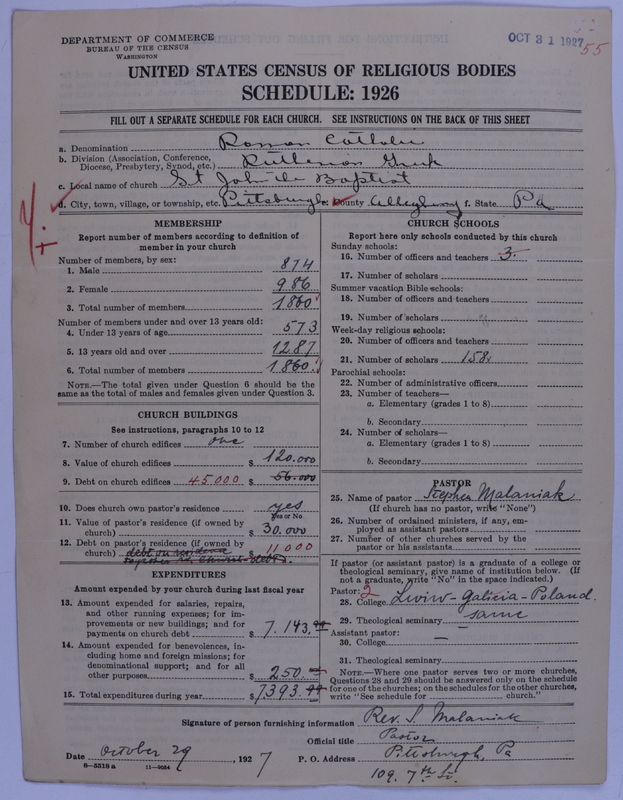 DEPARTMENT OF COMMERCE
BUREAU OF THE CENSUS
WASHINGTON
OCT 31 1927
55
UNITED STATES CENSUS OF RELIGIOUS BODIES
SCHEDULE: 1926
FILL OUT A SEPARATE SCHEDULE FOR EACH CHURCH. SEE INSTRUCTIONS ON THE BACK OF THIS SHEET
a. Denomination Roman Catholic
b. Division (Association, Conference, Diocese, Presbytery, Synod, etc.) Ruthenian Greek
c. Local name of church St John the Baptist
d. City, town, village, or township, etc. Pittsburgh e. County Allegheny f. State Pa
MEMBERSHIP
Report number of members according to definition of member in your church
Number of members, by sex:
1. Male 874
2. Female 986
3. Total number of members 1860
Number of members under and over 13 years old:
4. Under 13 years of age 573
5. 13 years old and over 1287
6. Total number of members 1860
NOTE.—The total given under Question 6 should be the same as the total of males and females given under Question 3.
CHURCH BUILDINGS
See instructions, paragraphs 10 to 12
7. Number of church edifices one
8. Value of church edifices $ 120.000
9. Debt on church edifices 45000 $ 56.000
10. Does church own pastor's residence yes
Yes or No
11. Value of pastor's residence (if owned by church) $ 30.000
12. Debt on pastor's residence (if owned by church) debt on residence together on church debt. $ 11000
EXPENDITURES
Amount expended by your church during last fiscal year
13. Amount expended for salaries, repairs, and other running expenses; for improvements or new buildings; and for payments on church debt $ 7.143.
14. Amount expended for benevolences, including home and foreign missions; for denominational support; and for all other purposes $ 250.
15. Total expenditures during year $ 7393.
CHURCH SCHOOLS
Report here only schools conducted by this church
Sunday schools:
16. Number of officers and teachers 3.
17. Number of scholars
Summer vacation Bible schools:
18. Number of officers and teachers
19. Number of scholars
Week-day religious schools:
20. Number of officers and teachers
21. Number of scholars 158
Parochial schools:
22. Number of administrative officers
23. Number of teachers—
a. Elementary (grades 1 to 8)
b. Secondary
24. Number of scholars—
a. Elementary (grades 1 to 8)
b. Secondary
PASTOR
25. Name of pastor Stephen Malaniak
(If church has no pastor, write "None")
26. Number of ordained ministers, if any, employed as assistant pastors
27. Number of other churches served by the pastor or his assistants
If pastor (or assistant pastor) is a graduate of a college or theological seminary, give name of institution below. (If not a graduate, write "No" in the space indicated.)
Pastor: 2
28. College Lwiw-Galicia-Poland.
29. Theological seminary same
Assistant pastor:
30. College —
31. Theological seminary
NOTE.—Where one pastor serves two or more churches, Questions 28 and 29 should be answered only on the schedule for one of the churches; on the schedules for the other churches, write "See schedule for church."
Signature of person furnishing information Rev. S. Malaniak
Official title Pastor
Date October 29, 1927 P. O. Address Pittsburgh, Pa
8—5518 a 11—9024
109. 7th St.